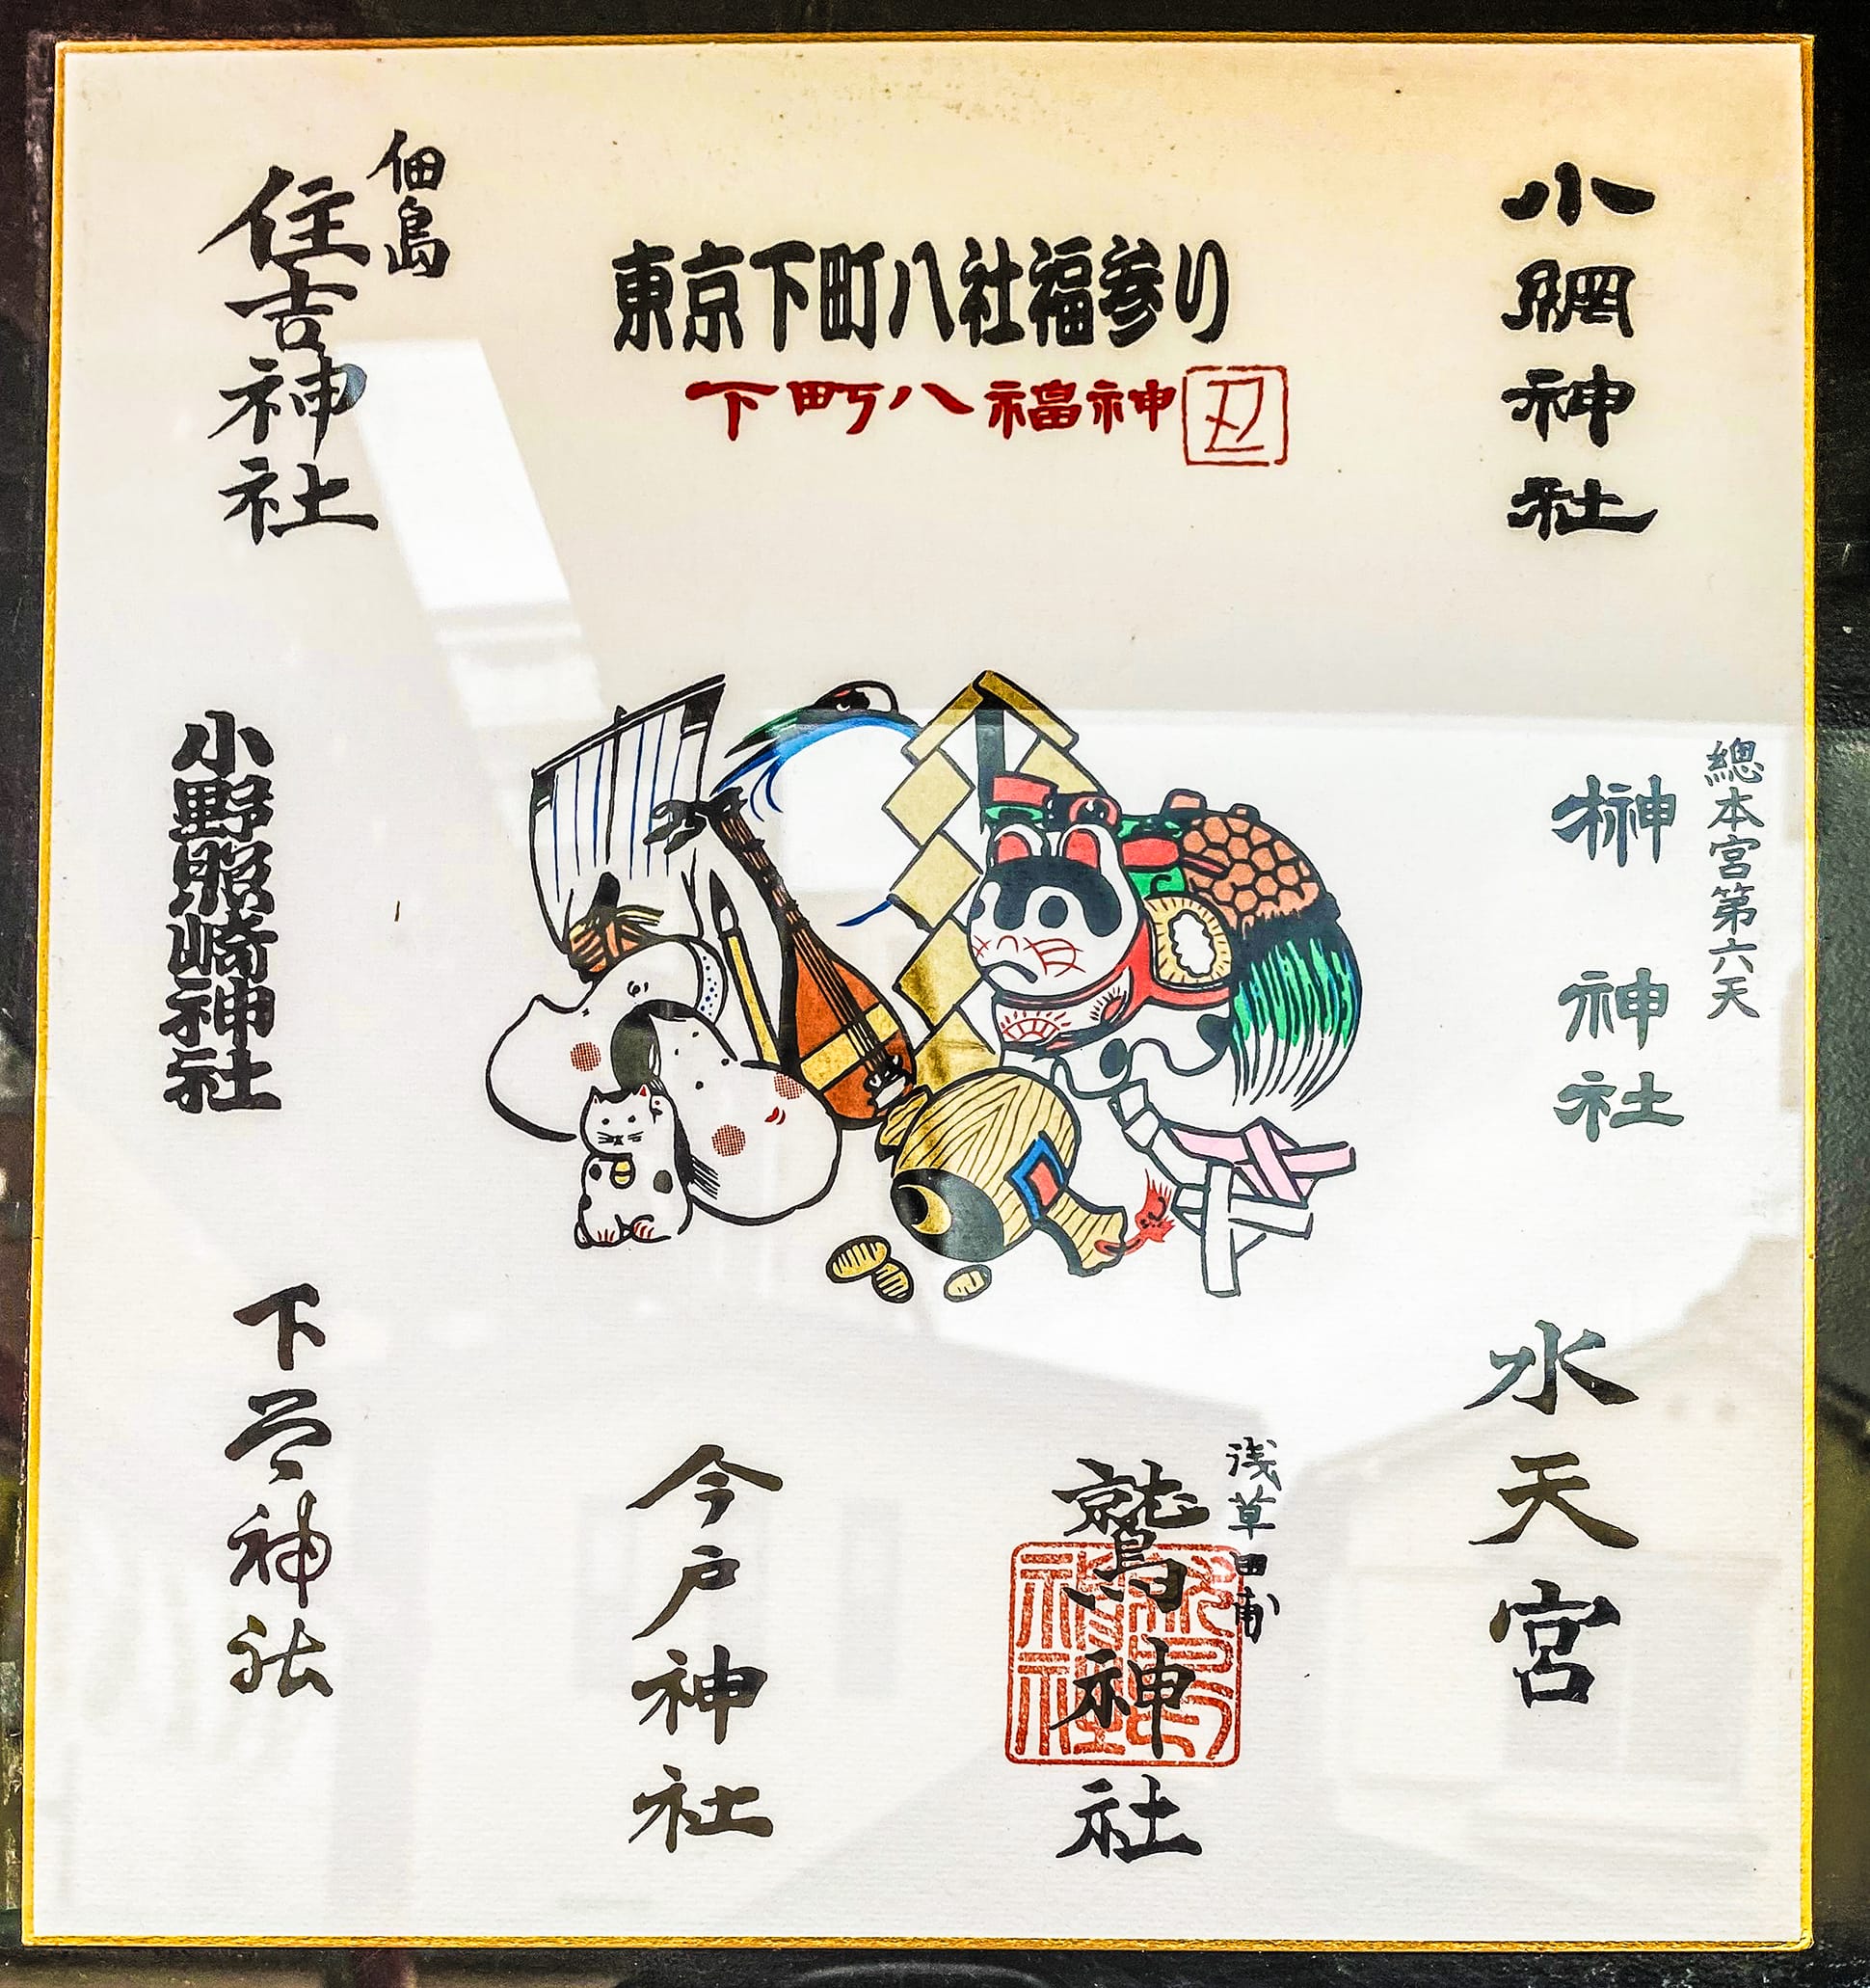 東京下町八社福参り
下町八福神
丑
小網神社
總本宮第六天
榊神社
水天宮
浅草田甫
鷲神社
今戸神社
下谷神社
小野照崎神社
佃島
住吉神社